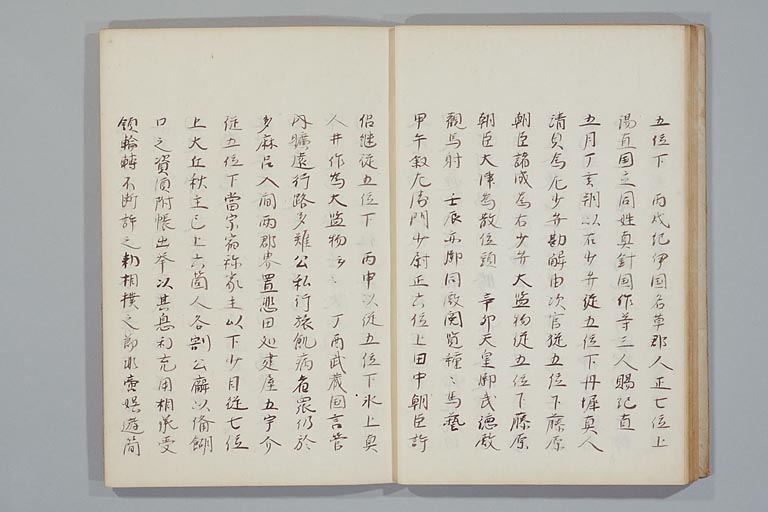 五位下　丙戌紀伊国名草郡人正七位上
湯直国立同姓真針国作等三人賜紀直
五月丁亥朔以右少弁従五位下丹墀真人
清貝為左少弁勘解由次官従五位下藤原
朝臣諸成為右少弁大監物従五位下藤原
朝臣大津為散位頭　辛卯天皇御武徳殿
観馬射　壬辰亦御同殿閲覧種〻馬藝
甲午叙左衛門少尉正六位上田中朝臣許
侶継従五位下　丙申以従五位下氷上真
人井作為大監物　丁酉武蔵国言管
内曠遠行路多難公私行旅飢病者衆仍於
多麻呂入間両郡界置悲田処建屋五宇介
従五位下當宗宿祢家主以下少目従七位
上大丘秋主已上六箇人各割公廨以備餬
口之資須附帳出挙以其息利充用相承受
領輪轉不断許之勅相撲之節非啻娯遊簡